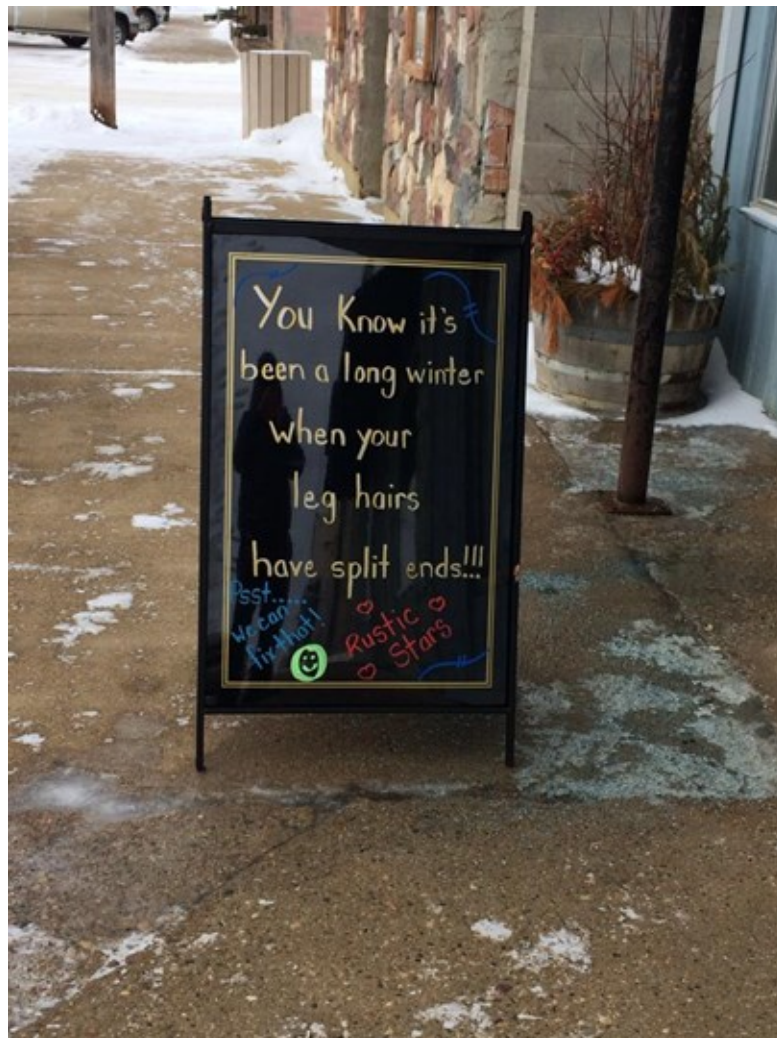 You Know it's
been a long winter
when your
leg hairs
have split ends!!!
Psst.....
We can
fix that!
Rustic
Stars